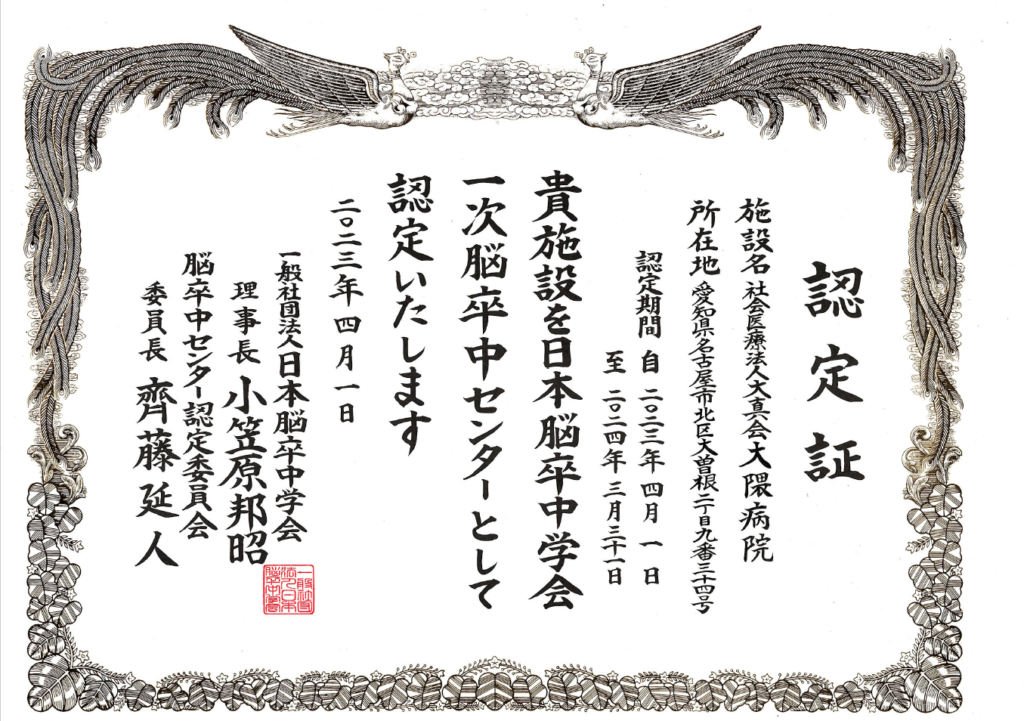 認定証
施設名 社会医療法人大真会大隈病院
所在地 愛知県名古屋市北区大曽根二丁目九番三十四号
認定期間 自 二〇二三年 四月 一 日
至 二〇二四年 三月三十一日
貴施設を日本脳卒中学会
一次脳卒中センターとして
認定いたします
二〇二三年 四月 一日
一般社団法人日本脳卒中学会
理事長 小笠原邦昭
脳卒中センター認定委員会
委員長 齊藤延人